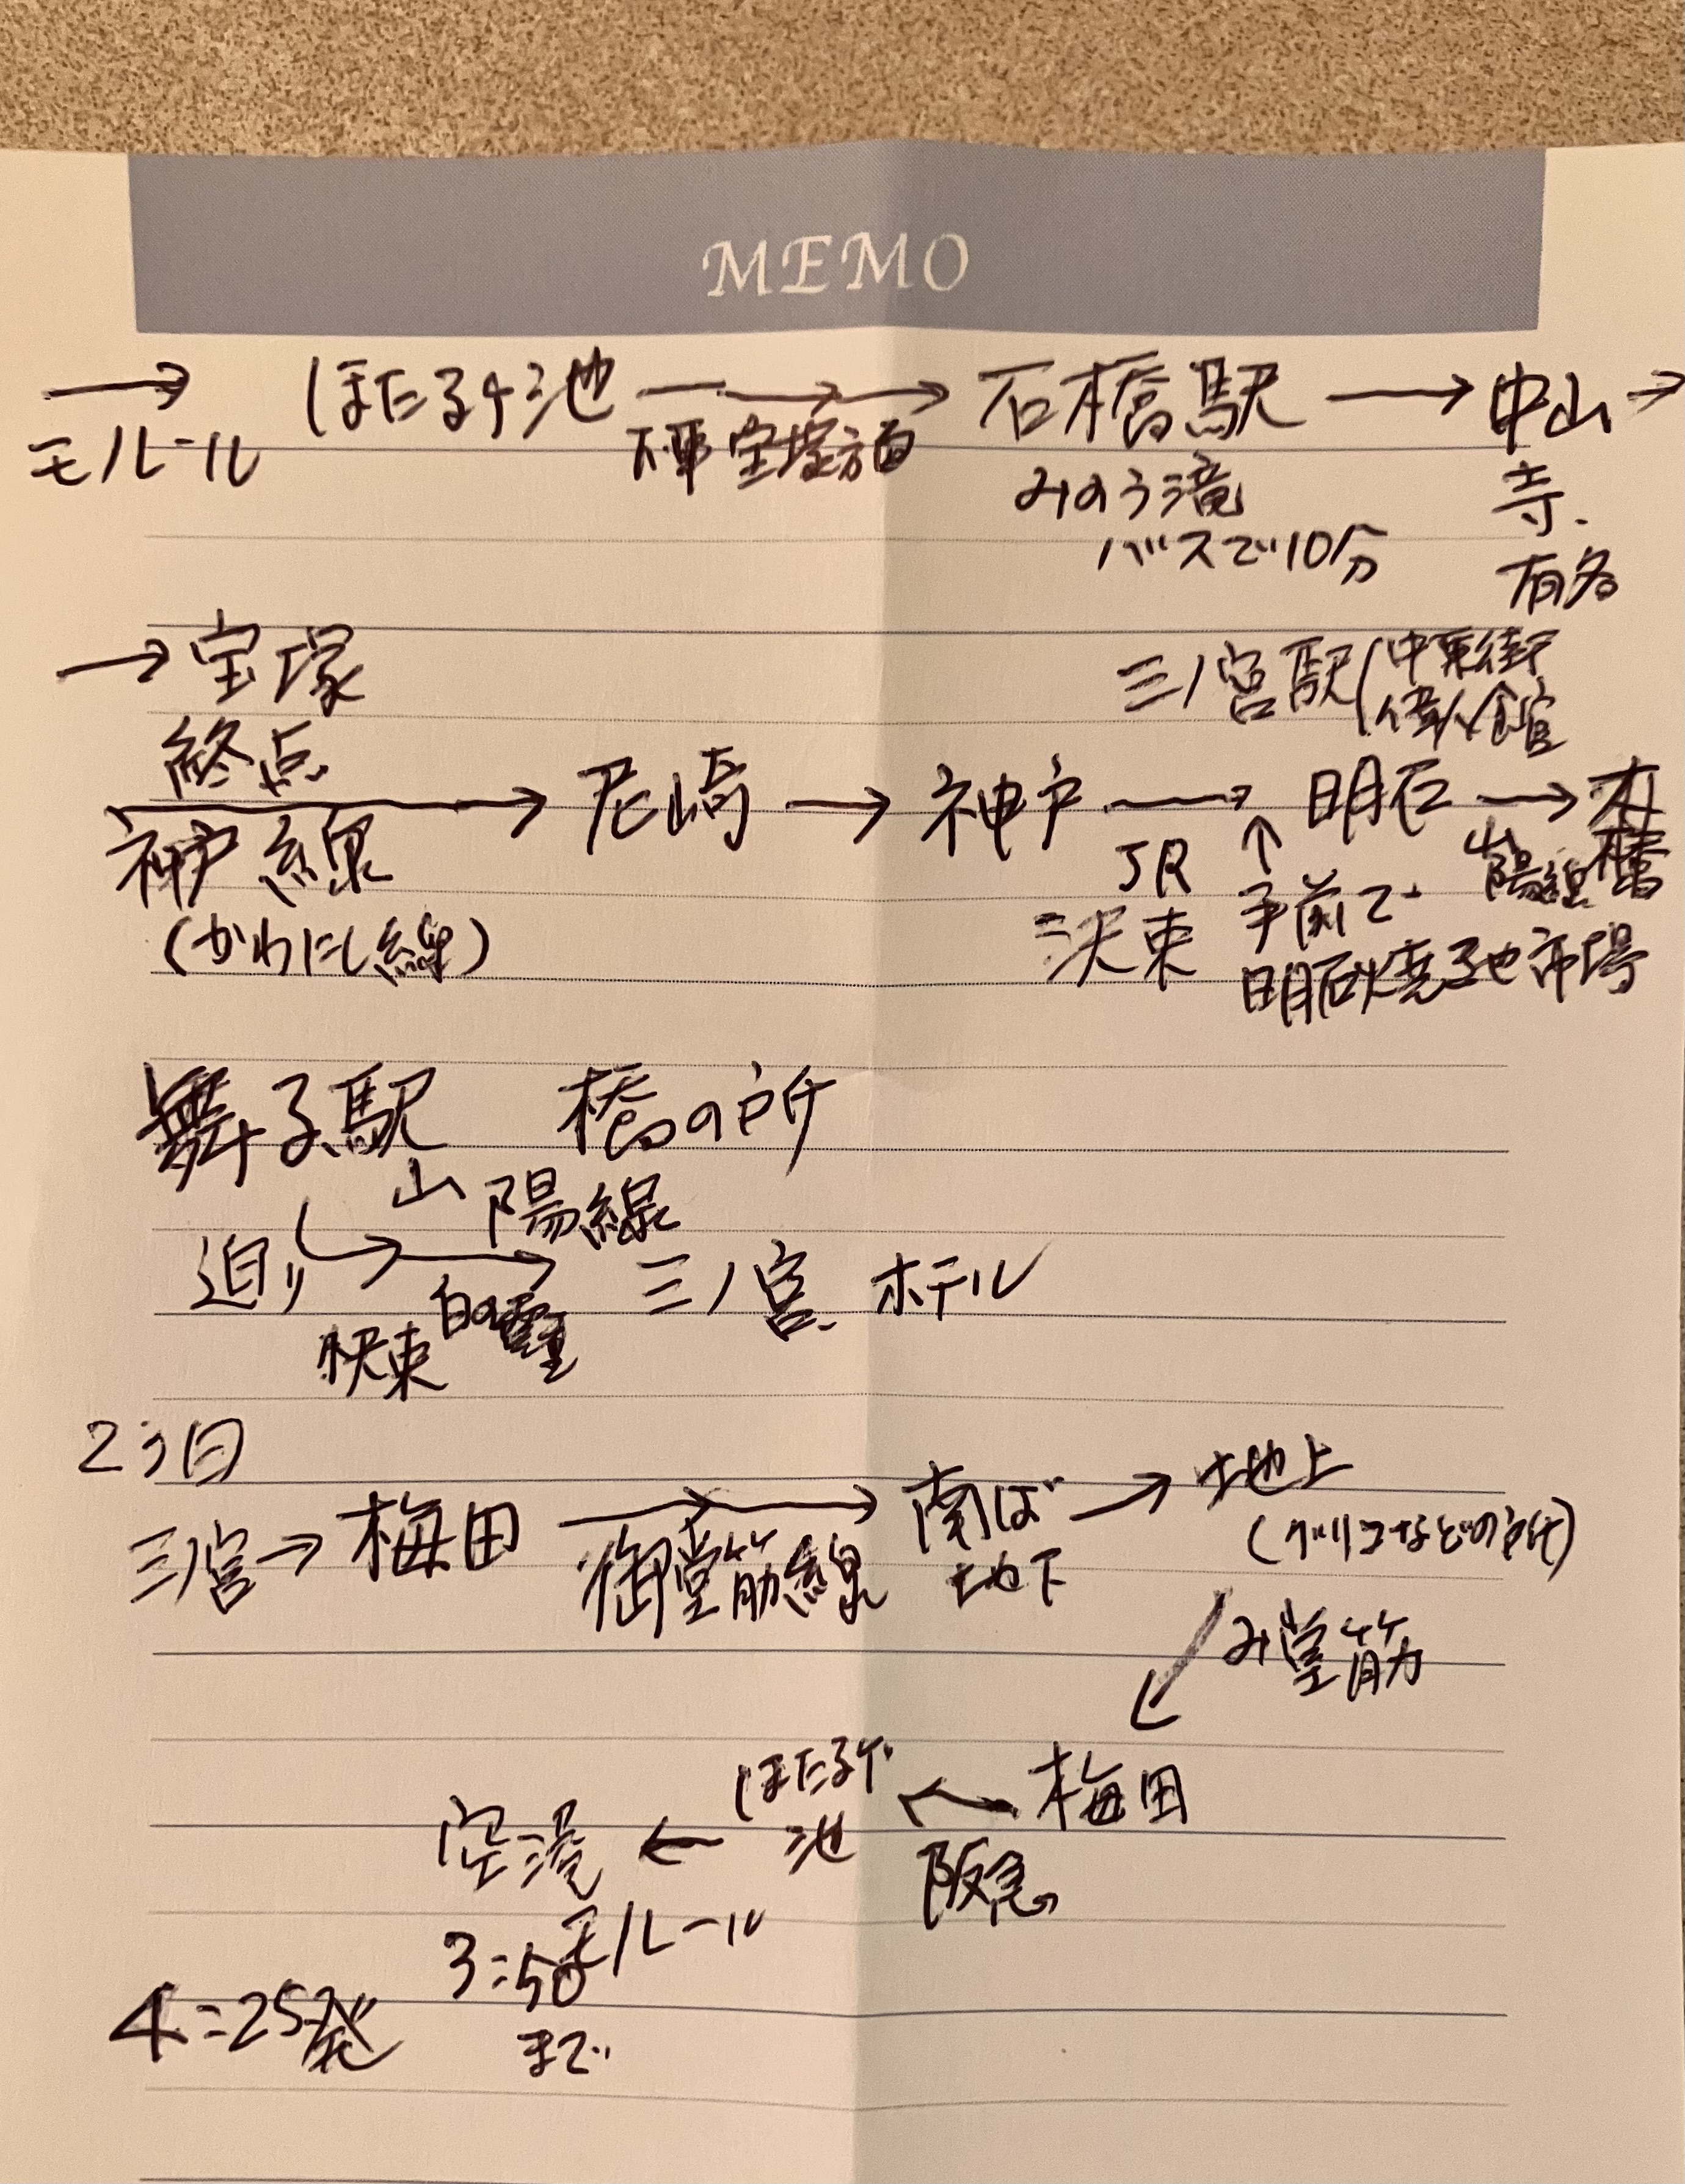 MEMO
→ ほたるケ池 →→ 石橋駅 → 中山 →
モノレール 宝塚方面
みのう滝 寺.
バスで10分 有名
→ 宝塚 三ノ宮駅(中華街
終点 館
→ 尼崎 → 神戸 → 明石 →
神戸線 JR ↑ 山陽線
(かわにし線) 手前で
明石焼 市場
舞子駅 橋の所
山陽線
→→ 三ノ宮 ホテル
快速
2日
三ノ宮→ 梅田 →→ 南ば → 地上
御堂筋線 地下 (グリコなどの所)
↙ み堂筋
空港 ← ほたるケ池 ← 梅田
阪急
モノレール
3:50
まで
4:25発